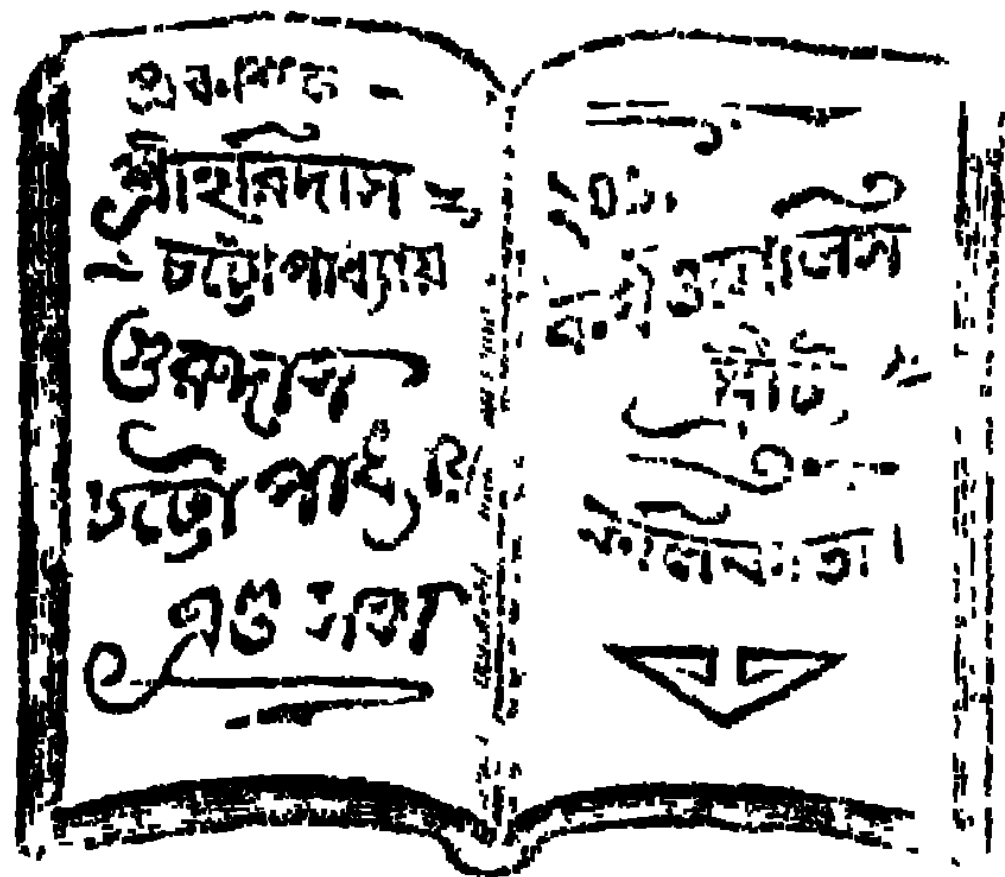 প্রকাশক -
শ্রীহরিদাস
চট্টোপাধ্যায়
গুরুদাস
চট্টোপাধ্যায়
এণ্ড সন্স
কর্ণওয়ালিস
ষ্ট্রীট,
কলিকাতা।